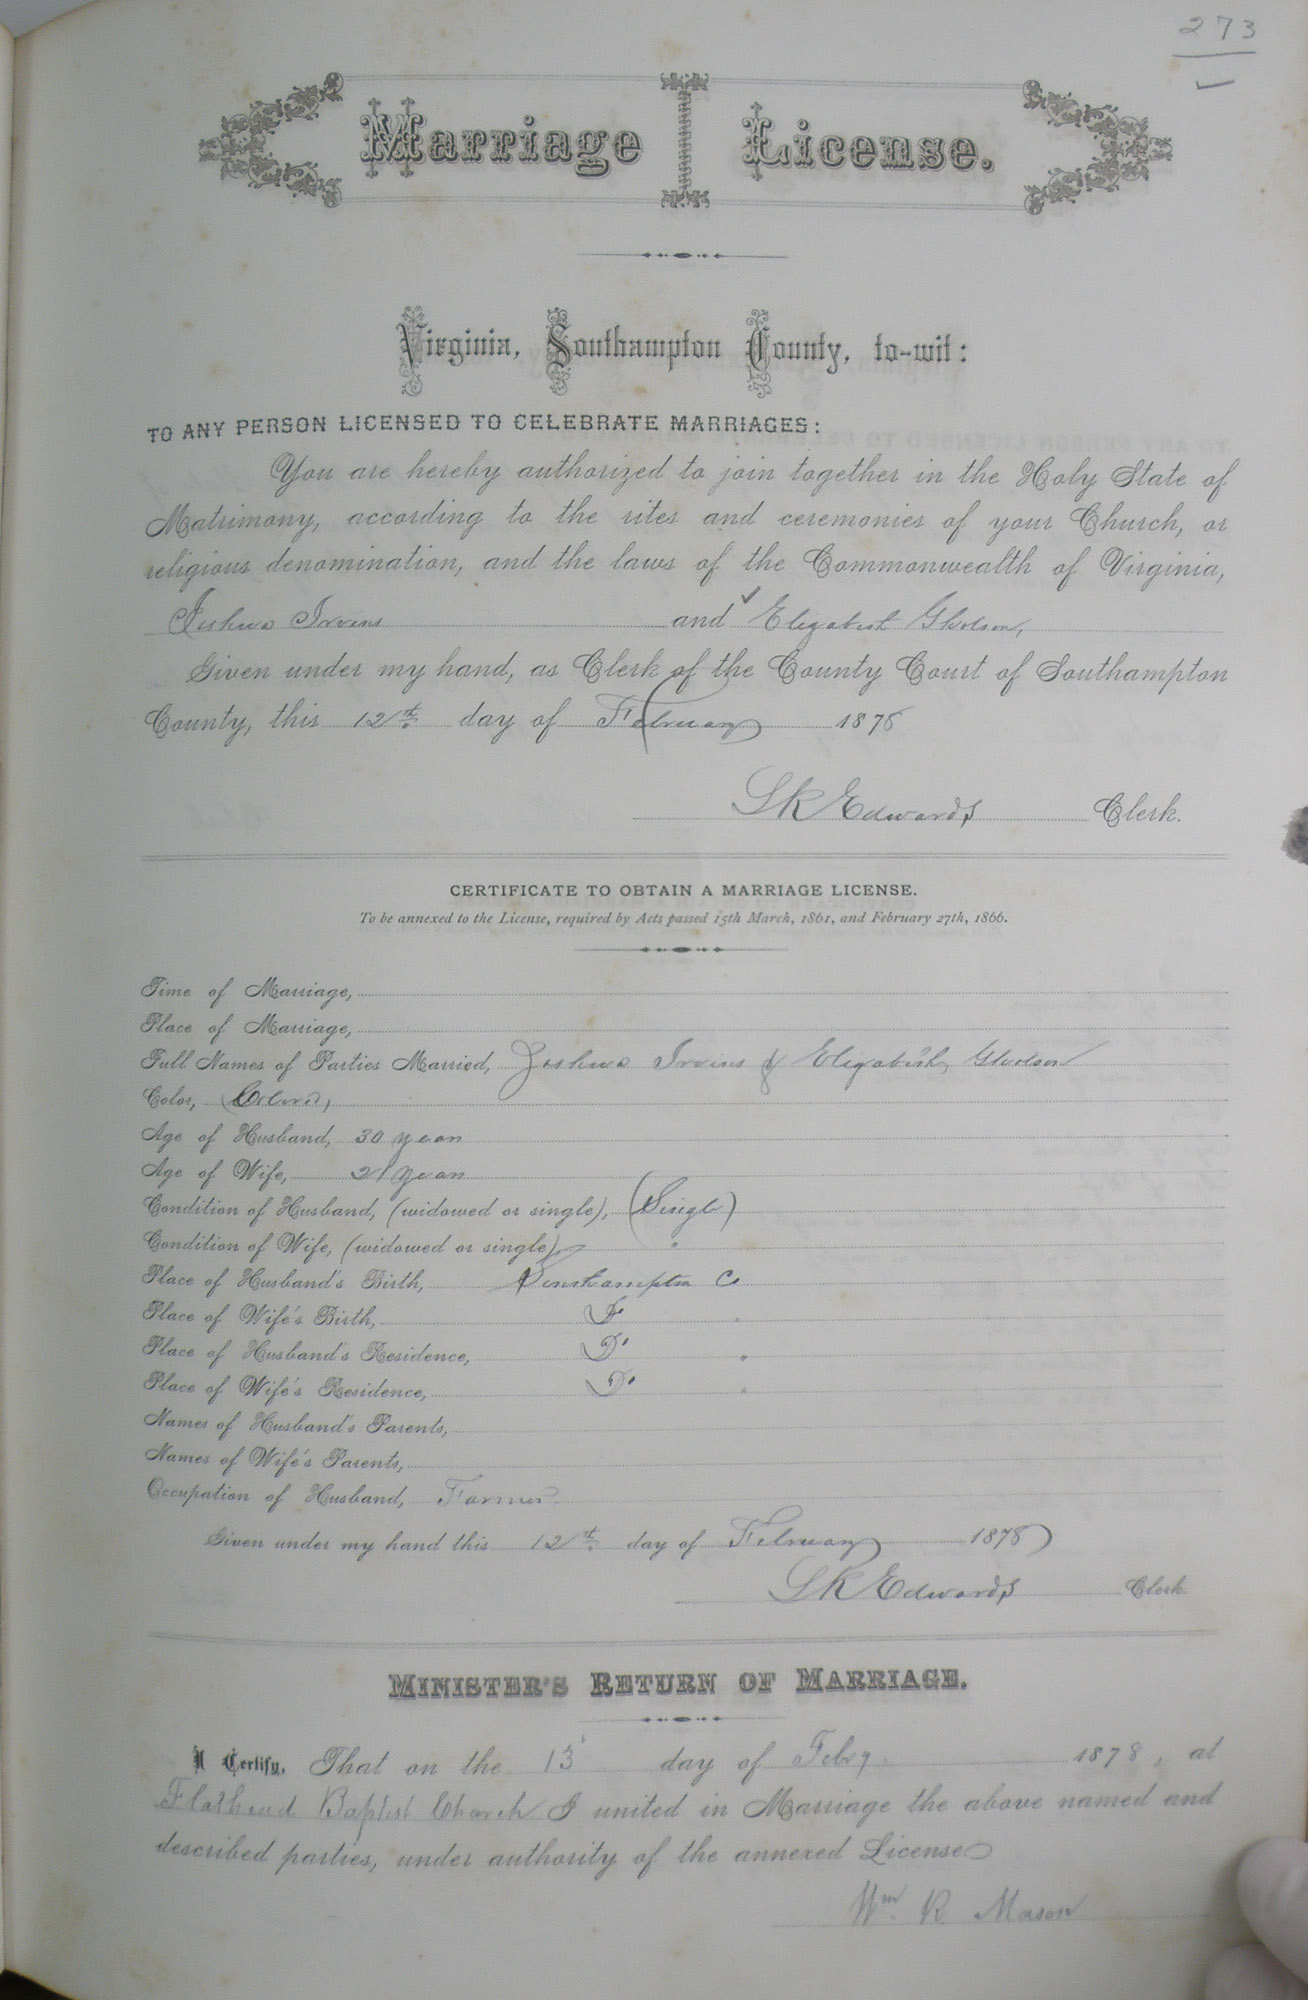 273
Marriage License.
Virginia, Southampton County, to-wit:
TO ANY PERSON LICENSED TO CELEBRATE MARRIAGES:
You are hereby authorized to join together in the Holy State of
Matrimony, according to the rites and ceremonies of your Church, or
religious denomination, and the laws of the Commonwealth of Virginia,
Joshua Irvins and Elizabeth Gholson,
Given under my hand, as Clerk of the County Court of Southampton
County, this 12th day of February 1878
LR Edwards Clerk.
CERTIFICATE TO OBTAIN A MARRIAGE LICENSE.
To be annexed to the License, required by Acts passed 15th March, 1861, and February 27th, 1866.
Time of Marriage,
Place of Marriage,
Full Names of Parties Married, Joshua Irvins & Elizabeth Gholson
Color, Colored,
Age of Husband, 30 years
Age of Wife, 21 years
Condition of Husband, (widowed or single), (Single)
Condition of Wife, (widowed or single), "
Place of Husband's Birth, Southampton Co
Place of Wife's Birth, Do "
Place of Husband's Residence, Do "
Place of Wife's Residence, Do "
Names of Husband's Parents,
Names of Wife's Parents,
Occupation of Husband, Farmer
Given under my hand this 12th day of February 1878
LR Edwards Clerk
MINISTER'S RETURN OF MARRIAGE.
I Certify, That on the 13 day of Feb'y 1878, at
Flathead Baptist Church I united in Marriage the above named and
described parties, under authority of the annexed License
Wm R Mason